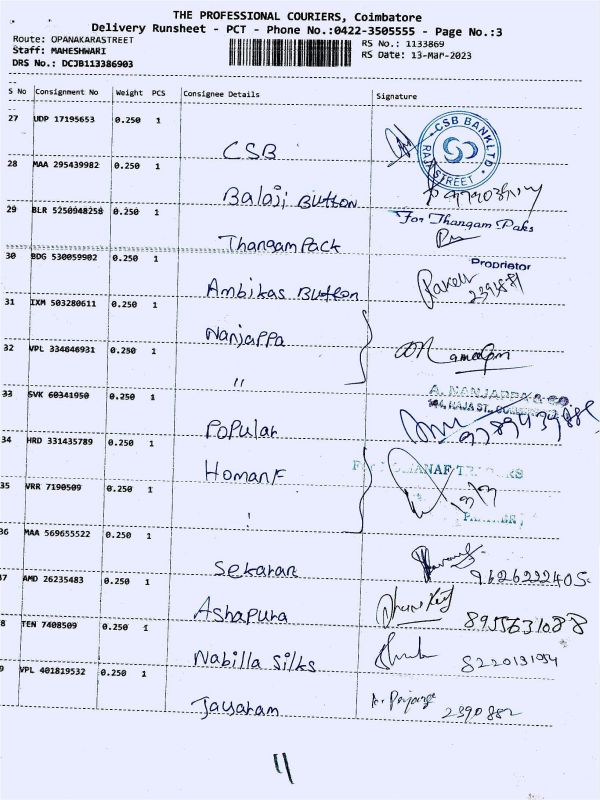 THE PROFESSIONAL COURIERS, Coimbatore
Delivery Runsheet - PCT - Phone No.:0422-3505555 - Page No.:3
Route: OPANAKARASTREET
RS No.: 1133869
Staff: MAHESHWARI
RS Date: 13-Mar-2023
DRS No.: DCJB113386903
S No Consignment No Weight PCS Consignee Details Signature
27 UDP 17195653 0.250 1
CSB
CSB BANK LTD
RAJA STREET
28 MAA 295439982 0.250 1
Balaji Button
29 BLR 5250948258 0.250 1
For Thangam Paks
Thangam Pack
30 BDG 530059902 0.250 1
Proprietor
Ambikas Button
31 IXM 503280611 0.250 1
Nanjappa
32 VPL 334646931 0.250 1
"
A. NANJAPPA & CO.
33 SVK 60341950 0.250 1
Popular
34 HRD 331435789 0.250 1
Homanf
35 VRR 7190509 0.250 1
36 MAA 569655522 0.250 1
Sekaran 9626222405
37 AMD 26235483 0.250 1
Ashapura 8955631088
8 TEN 7408509 0.250 1
Nabilla Silks 8220131954
9 VPL 401819532 0.250 1
Jayaram 2390882